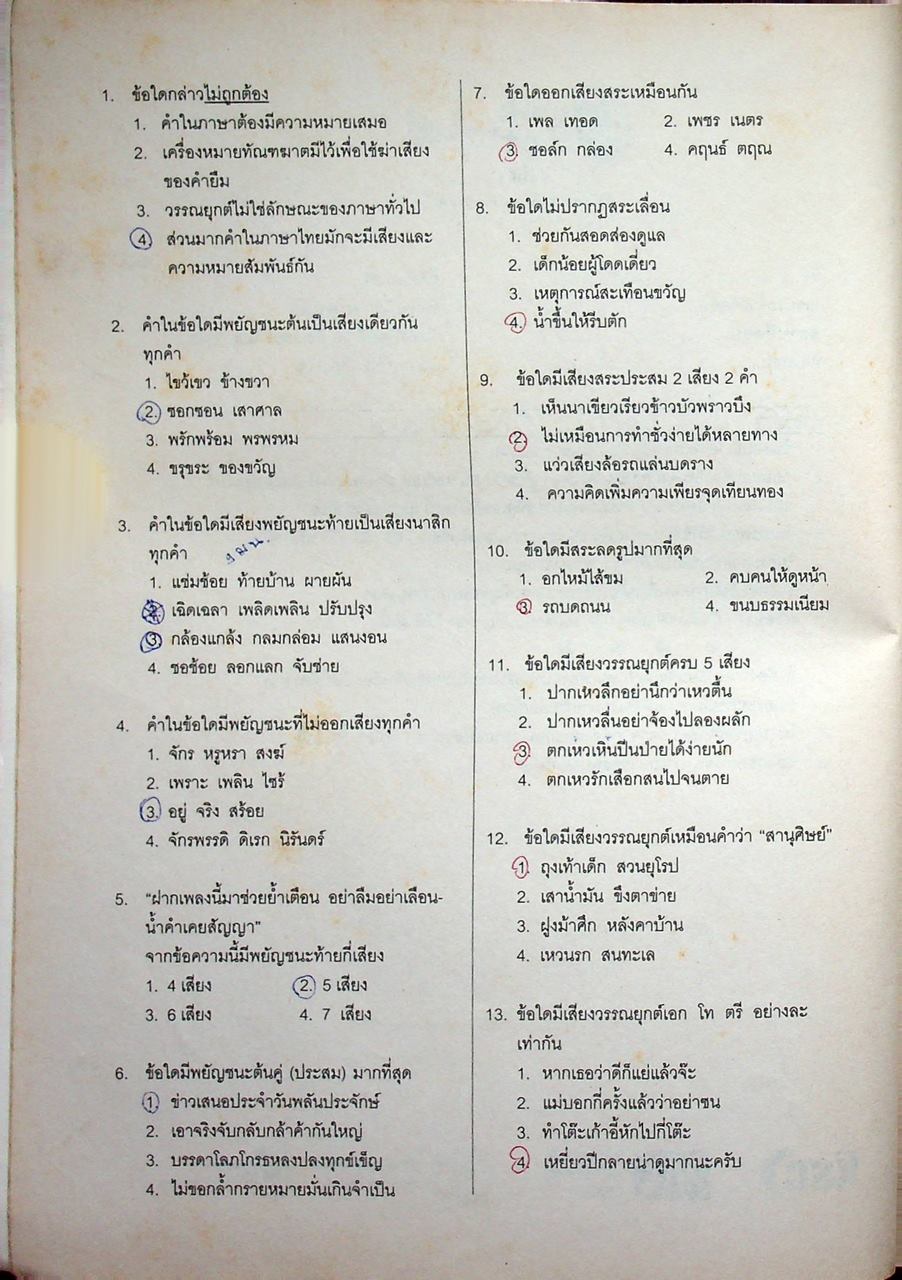 1. ข้อใดกล่าวไม่ถูกต้อง
1. คำในภาษาต้องมีความหมายเสมอ
2. เครื่องหมายทัณฑฆาตมีไว้เพื่อใช้ฆ่าเสียง
ของคำยืม
3. วรรณยุกต์ไม่ใช่ลักษณะของภาษาทั่วไป
4. ส่วนมากคำในภาษาไทยมักจะมีเสียงและ
ความหมายสัมพันธ์กัน
2. คำในข้อใดมีพยัญชนะต้นเป็นเสียงเดียวกัน
ทุกคำ
1. ไขว้เขว ข้างขวา
2. ซอกซอน เสาศาล
3. พรักพร้อม พรพรหม
4. ขรุขระ ของขวัญ
3. คำในข้อใดมีเสียงพยัญชนะท้ายเป็นเสียงนาสิก
ทุกคำ ง ม น
1. แช่มช้อย ท้ายบ้าน ผายผัน
2. เฉิดเฉลา เพลิดเพลิน ปรับปรุง
3. กล้องแกล้ง กลมกล่อม แสนงอน
4. ซอช้อย ลอกแลก จับช่าย
4. คำในข้อใดมีพยัญชนะที่ไม่ออกเสียงทุกคำ
1. จักร หรูหรา สงฆ์
2. เพราะ เพลิน ไซร้
3. อยู่ จริง สร้อย
4. จักรพรรดิ ดิเรก นิรันดร์
5. "ฝากเพลงนี้มาช่วยย้ำเตือน อย่าลืมอย่าเลือน-
น้ำคำเคยสัญญา"
จากข้อความนี้มีพยัญชนะท้ายกี่เสียง
1. 4 เสียง 2. 5 เสียง
3. 6 เสียง 4. 7 เสียง
6. ข้อใดมีพยัญชนะต้นคู่ (ประสม) มากที่สุด
1. ข่าวเสนอประจำวันพลันประจักษ์
2. เอาจริงจับกลับกล้าค้ากันใหญ่
3. บรรดาโลภโกรธหลงปลงทุกข์เข็ญ
4. ไม่ขอกล้ำกรายหมายมั่นเกินจำเป็น
7. ข้อใดออกเสียงสระเหมือนกัน
1. เพล เทอด 2. เพชร เนตร
3. ชอล์ก กล่อง 4. คฤนธ์ ตฤณ
8. ข้อใดไม่ปรากฏสระเลื่อน
1. ช่วยกันสอดส่องดูแล
2. เด็กน้อยผู้โดดเดี่ยว
3. เหตุการณ์สะเทือนขวัญ
4. น้ำขึ้นให้รีบตัก
9. ข้อใดมีเสียงสระประสม 2 เสียง 2 คำ
1. เห็นนาเขียวเรียวข้าวบัวพราวบึง
2. ไม่เหมือนการทำชั่วง่ายได้หลายทาง
3. แว่วเสียงล้อรถแล่นบดราง
4. ความคิดเพิ่มความเพียรจุดเทียนทอง
10. ข้อใดมีสระลดรูปมากที่สุด
1. อกไหม้ไส้ขม 2. คบคนให้ดูหน้า
3. รถบดถนน 4. ขนบธรรมเนียม
11. ข้อใดมีเสียงวรรณยุกต์ครบ 5 เสียง
1. ปากเหวลึกอย่านึกว่าเหวตื้น
2. ปากเหวลื่นอย่าจ้องไปลองผลัก
3. ตกเหวเหินปีนป่ายได้ง่ายนัก
4. ตกเหวรักเสือกสนไปจนตาย
12. ข้อใดมีเสียงวรรณยุกต์เหมือนคำว่า "สานุศิษย์"
1. ถุงเท้าเด็ก สวนยุโรป
2. เสาน้ำมัน ขึงตาข่าย
3. ฝูงม้าศึก หลังคาบ้าน
4. เหวนรก สนทะเล
13. ข้อใดมีเสียงวรรณยุกต์เอก โท ตรี อย่างละ
เท่ากัน
1. หากเธอว่าดีก็แย่แล้วจ๊ะ
2. แม่บอกกี่ครั้งแล้วว่าอย่าซน
3. ทำโต๊ะเก้าอี้หักไปกี่โต๊ะ
4. เหยี่ยวปีกลายน่าดูมากนะครับ